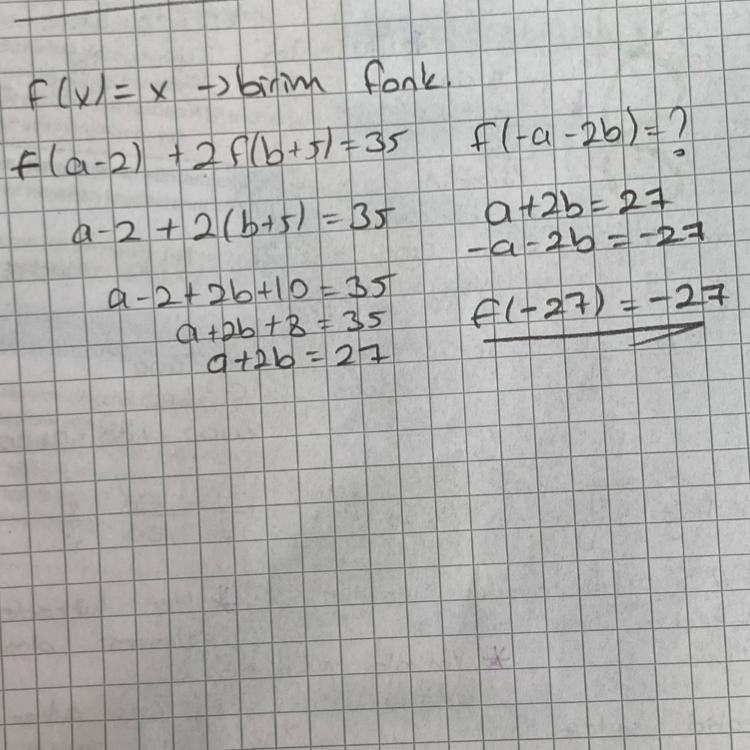 f(x) = x → birim fonk.
f(a-2) + 2f(b+5) = 35
a-2 + 2(b+5) = 35
a-2+2b+10 = 35
a+2b+8 = 35
a+2b = 27
f(-a-2b) = ?
a+2b = 27
-a-2b = -27
f(-27) = -27